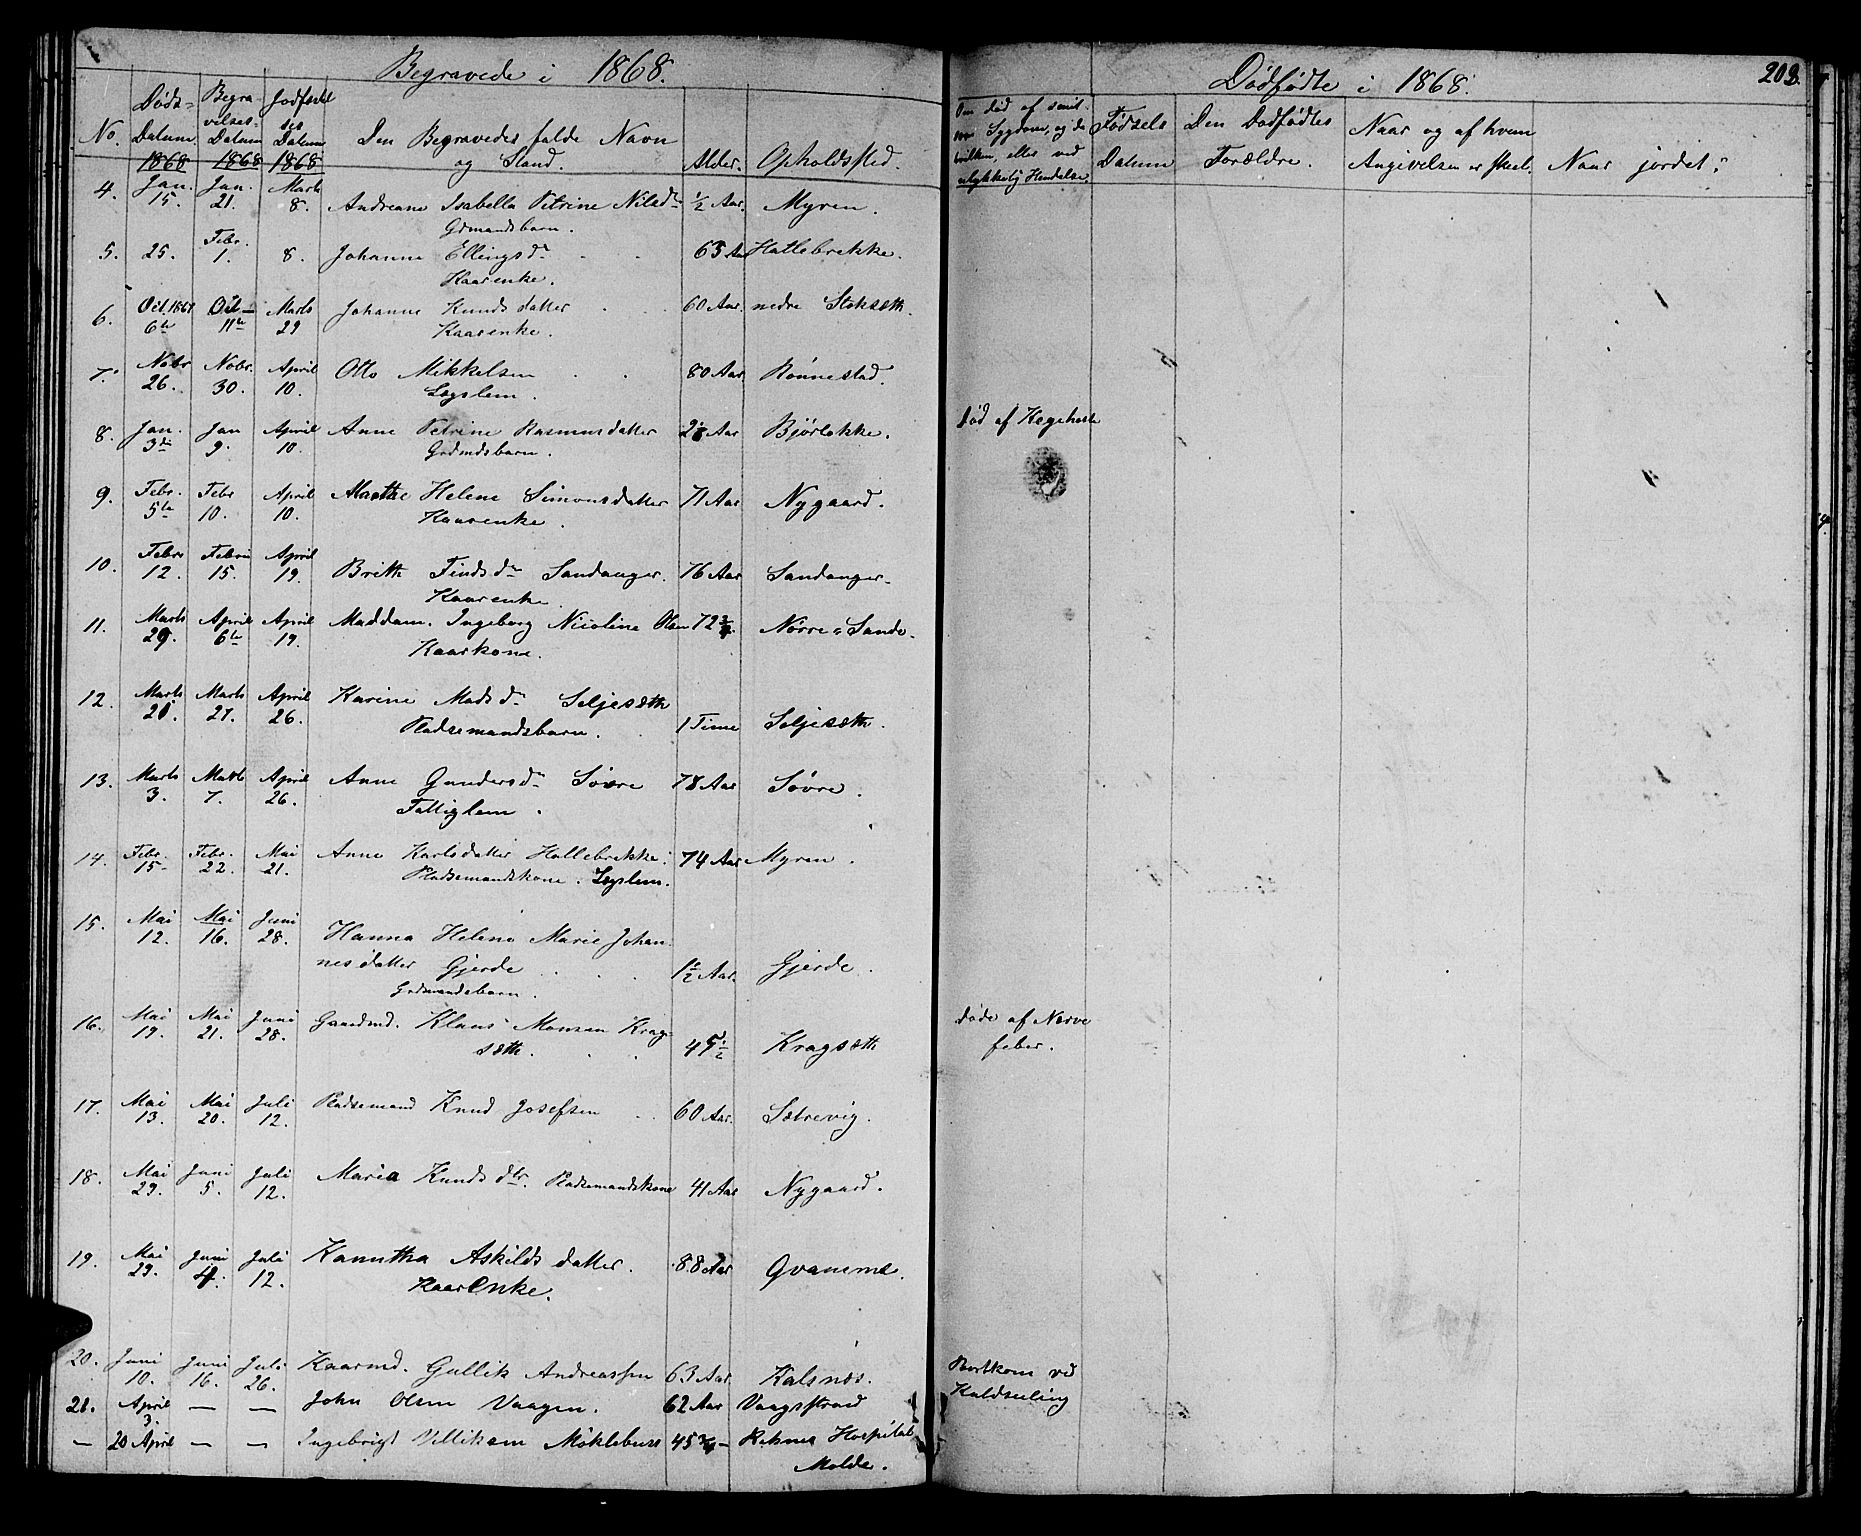 Begravede i 1868.
No. Døds- Datum 1868 Begra- velses- Datum 1868 Jordfæstel- ses Datum 1868 Den Begravedes fulde Navn og Stand. Alder. Opholdsted.
4. Jan. 15. Jan. 21. Marts 8. Andreane Isabella Petrine Nilsdr ½ Aar. Myren.
Grmandsbarn.
5. 25. Febr. 1. 8. Johanne Ellingsdr 63 Aar Hatlebrekke.
Kaarenke.
6. Oct. 1867 6te Oct 11te Marts 29 Johanne Knudsdatter 60 Aar nedre Stoksæth.
Kaarenke.
7. Nobr 26. Nobr. 30. April 10. Otto Mikkelsen 80 Aar Rønnestad.
Lægslem.
8. Jan. 3de Jan 9. April 10. Anne Petrine Rasmusdatter Aar Bjørlokke.
Grdmdsbarn.
9. Febr. 5te Febr 10. April 10. Marthe Helene Simonsdatter 71 Aar Nygaard.
Kaarenke.
10. Febr 12. Febru 15. April 19. Britte Findsdr Sandanger. 76 Aar Sandanger.
Kaarenke
11. Marts 29. April 6te April 19. Maddam. Ingeborg Nicoline Olsen 72 Nørre-Sande.
Kaarkone.
12. Marts Marts 27. April 26. Karine Madsdr Seljesæth
Pladsemandsbarn. 1 Time Seljesæth.
13. Marts 3. Marts 7. April 26. Anne Gundersdr Søvre 78 Aar Søvre.
Fattiglem.
14. Febr. 15. Febr. 22. Mai 21. Anne Karlsdatter Hatlebrekke. 74 Aar Myren.
Pladsemandskone. Lægslem.
15. Mai 12. Mai 16. Juni 28. Hanna Helene Marie Johan-
nesdatter Gjerde 1½ Aar. Gjerde.
Grdmandsbarn.
16. Mai 19. Mai 21. Juni 28. Gaardmd. Klaus Monsen Krag-
sæth. 45½ Kragsæth
17. Mai 13. Mai 20. Juli 12. Pladsemand Knud Josefsen 60 Aar. Sætrevig.
18. Mai 29. Juni 5. Juli 12. Maria Knudsdtr. Pladsemandskone 41 Aar Nygaard.
19. Mai 29. Juni 4. Juli 12. Kanutha Askildsdatter. 88 Aar Qvamme.
KaarEnke.
20. Juni 10. Juni 16. Juli 26. Kaarmd. Gullik Andreassen 63 Aar. Kalsnæs.
21. April 3. — — John Olsen Vaagen. 62 Aar Vaagstrand
— 20 April — — Ingebrigt Villiksen Møklebust 45 ¾ Reknes Hospital
Molde.
Dødfødte i 1868. 203.
Om død af smit- som Sygdom, og da hvilken, eller ved ulykkelig Hændelse. Fødsels Datum Den Dødfødtes Forældre. Naar og af hvem Angivelsen er skeet. Naar jordet.
død af Kighoste
døde af Nerve
feber.
Bortkom ved
Kuldseiling